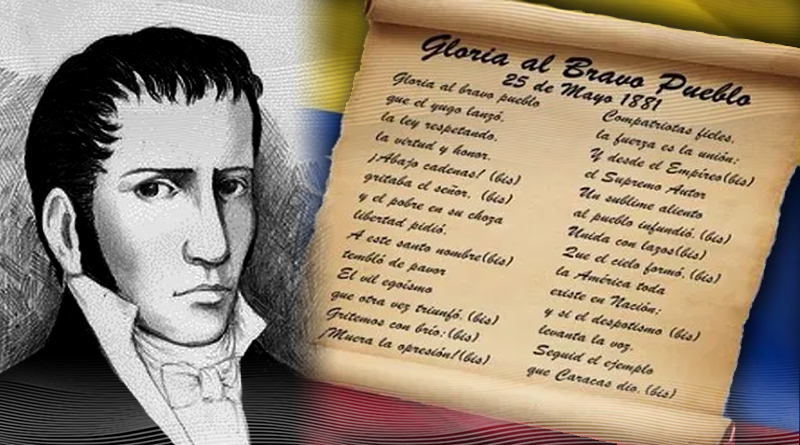 Gloria al Bravo Pueblo
25 de Mayo 1881
Gloria al bravo pueblo
que el yugo lanzó.
la ley respetando,
la virtud y honor.
¡Abajo cadenas! (bis)
gritaba el señor. (bis)
y el pobre en su choza
libertad pidió.
A este santo nombre(bis)
tembló de pavor
El vil egoísmo
que otra vez triunfó. (bis)
Gritemos con brío:(bis)
¡Muera la opresión!(bis)
Compatriotas fieles,
la fuerza es la unión;
Y desde el Empíreo(bis)
el Supremo Autor
Un sublime aliento
al pueblo infundió. (bis)
Unida con lazos(bis)
Que el cielo formó. (bis)
la América toda
existe en Nación;
y si el despotismo (bis)
levanta la voz.
Seguid el ejemplo
que Caracas dio. (bis)